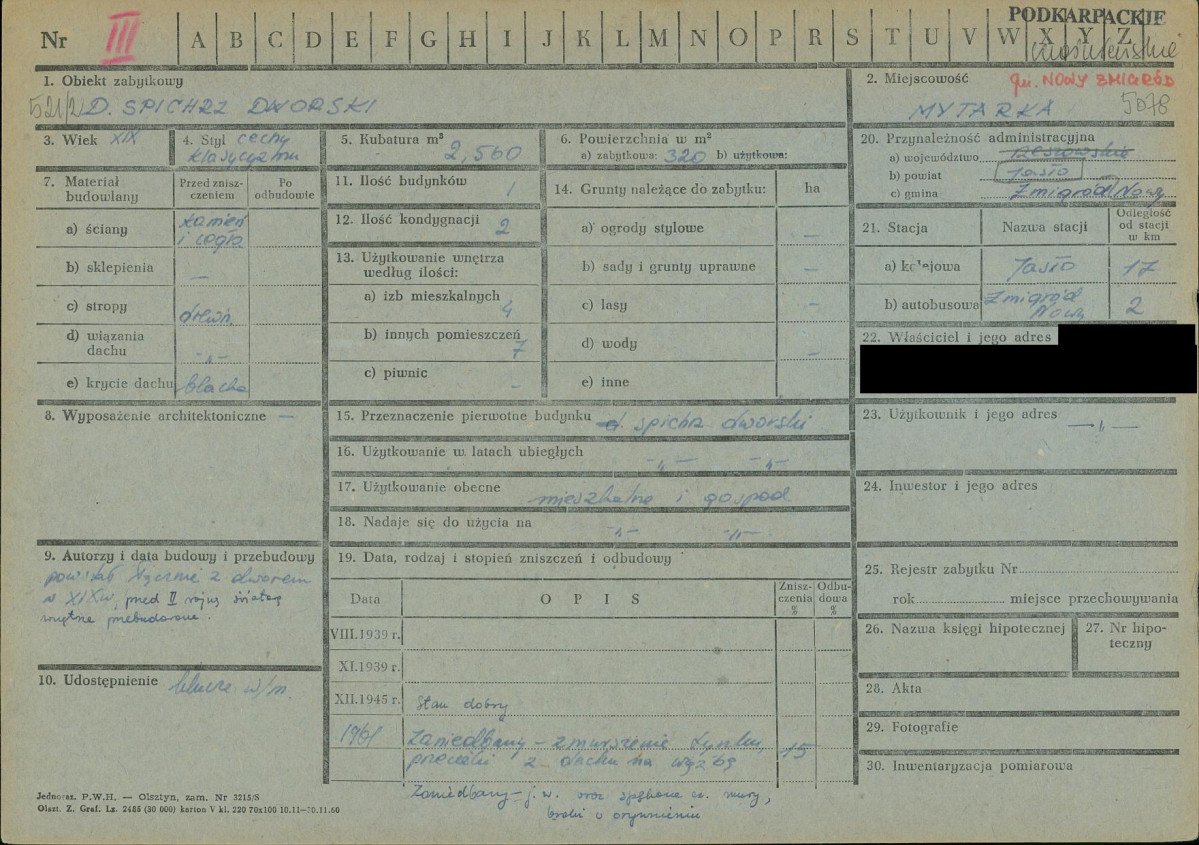 PODKARPACKIE
Nr III A B C D E F G H I J K L M N O P R S T U V W X Y Z
krośnieńskie
1. Obiekt zabytkowy
521/2 D. SPICHRZ DWORSKI
2. Miejscowość gm. NOWY ŻMIGRÓD
MYTARKA 5078
3. Wiek XIX
4. Styl cechy
klasycyzmu
5. Kubatura m³
2,560
6. Powierzchnia w m²
a) zabytkowa: 320 b) użytkowa:
7. Materiał
budowlany
Przed znisz-
czeniem
Po
odbudowie
a) ściany kamień
i cegła
b) sklepienia —
c) stropy drewn.
d) wiązania
dachu -„-
e) krycie dachu blacha
8. Wyposażenie architektoniczne —
9. Autorzy i data budowy i przebudowy
powstał łącznie z dworem
w XIXw, przed II wojną światową
wnętrze przebudowane.
10. Udostępnienie klucze w/m.
11. Ilość budynków 1
12. Ilość kondygnacji 2
13. Użytkowanie wnętrza
według ilości:
a) izb mieszkalnych 4
b) innych pomieszczeń 7
c) piwnic -
14. Grunty należące do zabytku: ha
a) ogrody stylowe —
b) sady i grunty uprawne —
c) lasy —
d) wody —
e) inne
15. Przeznaczenie pierwotne budynku d. spichrz dworski
16. Użytkowanie w latach ubiegłych -„- -„-
17. Użytkowanie obecne mieszkalne i gospod
18. Nadaje się do użycia na -„- -„-
19. Data, rodzaj i stopień zniszczeń i odbudowy
Data OPIS Znisz-
czenia
% Odbu-
dowa
%
VIII.1939 r.
XI.1939 r.
XII.1945 r. Stan dobry
1961 Zaniedbany – zmurszenie tynku,
przecieki z dachu na wyż bg 15
Zaniedbany – j.w. oraz spękane cz. mury,
braki w orynnieniu
20. Przynależność administracyjna
a) województwo rzeszowskie
b) powiat Jasło
c) gmina Żmigród Nowy
21. Stacja Nazwa stacji Odległość
od stacji
w km
a) kolejowa Jasło 17
b) autobusowa Żmigród
Nowy 2
22. Właściciel i jego adres
23. Użytkownik i jego adres
—„—
24. Inwestor i jego adres
25. Rejestr zabytku Nr
rok miejsce przechowywania
26. Nazwa księgi hipotecznej
27. Nr hipo-
teczny
28. Akta
29. Fotografie
30. Inwentaryzacja pomiarowa
Jednoraz. P.W.H. — Olsztyn, zam. Nr 3215/S
Olszt. Z. Graf. Lz. 2486 (30 000) karton V kl. 220 70x100 10.11—30.11.60